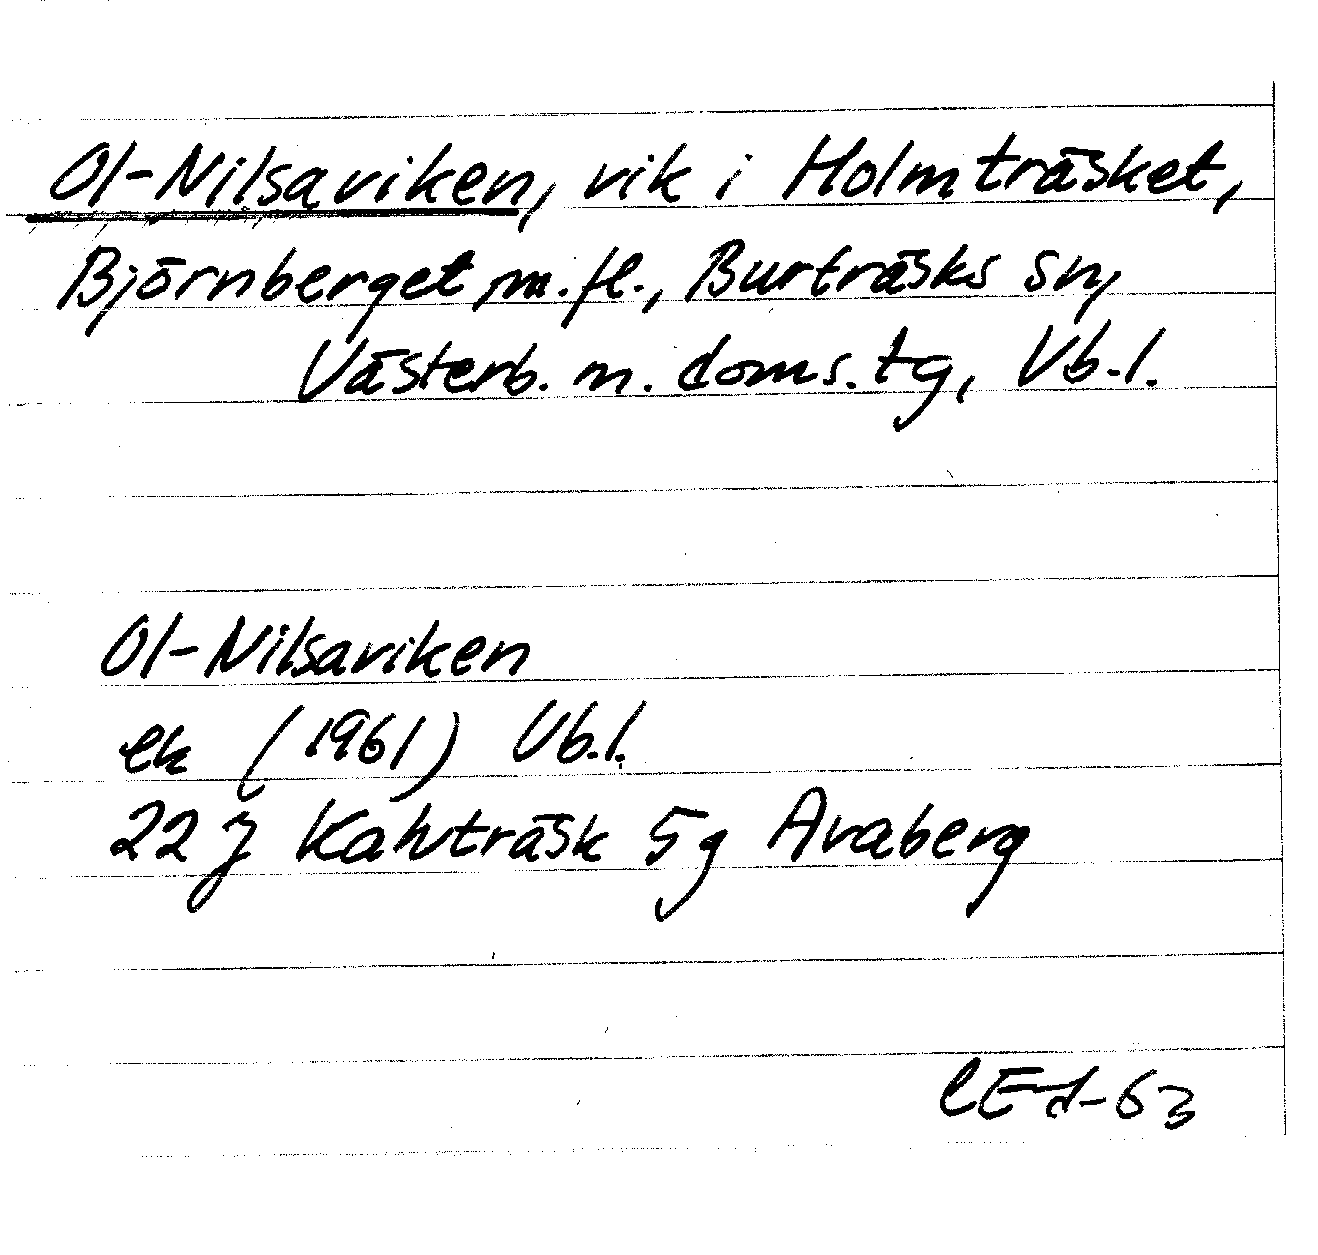 Ol-Nilsaviken, vik i Holmträsket,
Björnberget m.fl., Burträsks sn,
Västerb. m. doms.tg, Vb.l.
Ol-Nilsaviken
ek (1961) Vb.l.
22 J Kalvträsk 5 g Avaberg